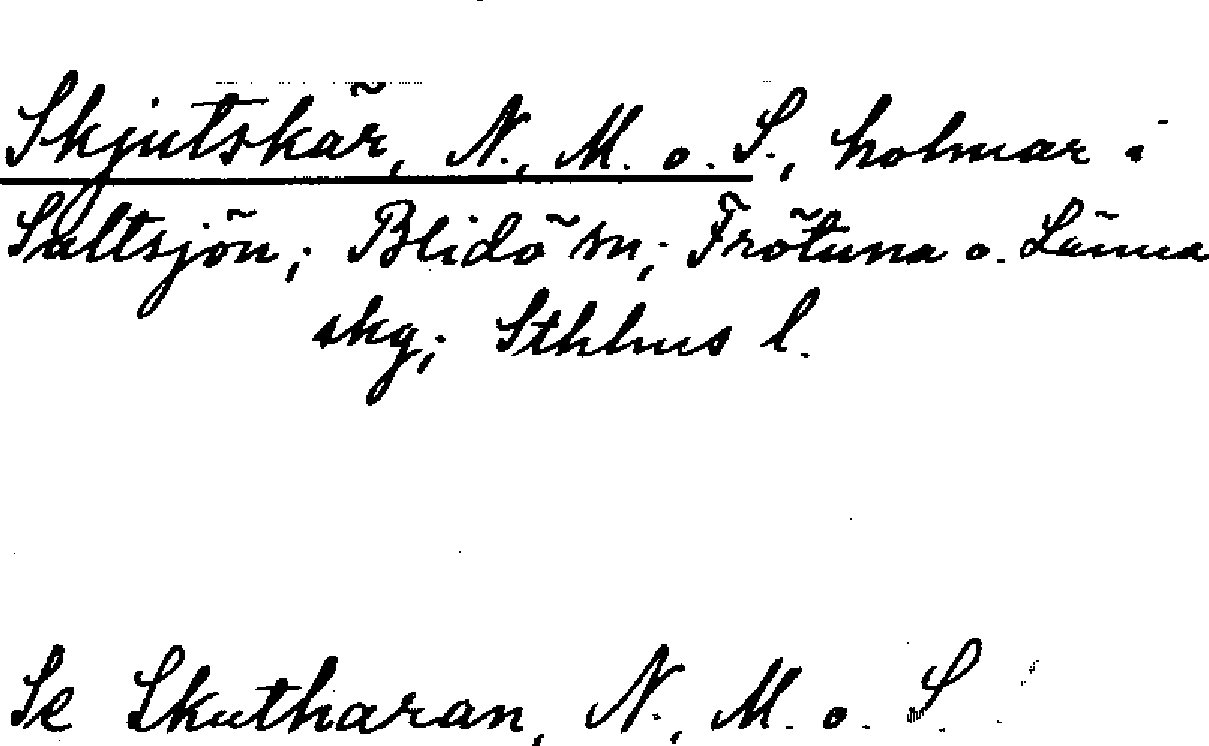 Skjutskär, N., M. o. S., holmar i
Saltsjön; Blidö sn; Frötuna o. Länna
skg; Sthlms l.
Se Skutharan, N., M. o. S.